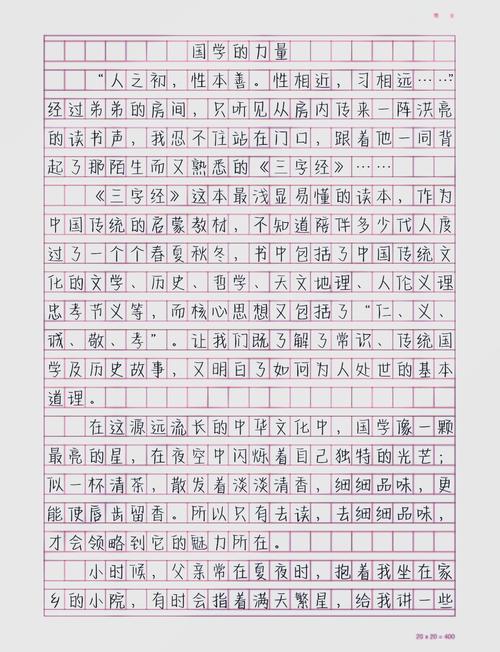 国学的力量
“人之初，性本善。性相近，习相远……”
经过弟弟的房间，只听见从房内传来一阵洪亮
的读书声，我忍不住站在门口，跟着他一同背
起了那陌生而又熟悉的《三字经》……
《三字经》这本最浅显易懂的读本，作为
中国传统的启蒙教材，不知道陪伴多少代人度
过了一个个春夏秋冬，书中包括了中国传统文
化的文学、历史、哲学、天文地理、人伦义理
忠孝节义等，而核心思想又包括了“仁、义、
诚、敬、孝”。让我们既了解了常识、传统国
学及历史故事，又明白了如何为人处世的基本
道理。
在这源远流长的中华文化中，国学像一颗
最亮的星，在夜空中闪烁着自己独特的光芒；
似一杯清茶，散发着淡淡清香，细细品味，更
能使唇齿留香。所以只有去读，去细细品味，
才会领略到它的魅力所在。
小时候，父亲常在夏夜时，抱着我坐在家
乡的小院，有时会指着满天繁星，给我讲一些
20 x 20 = 400